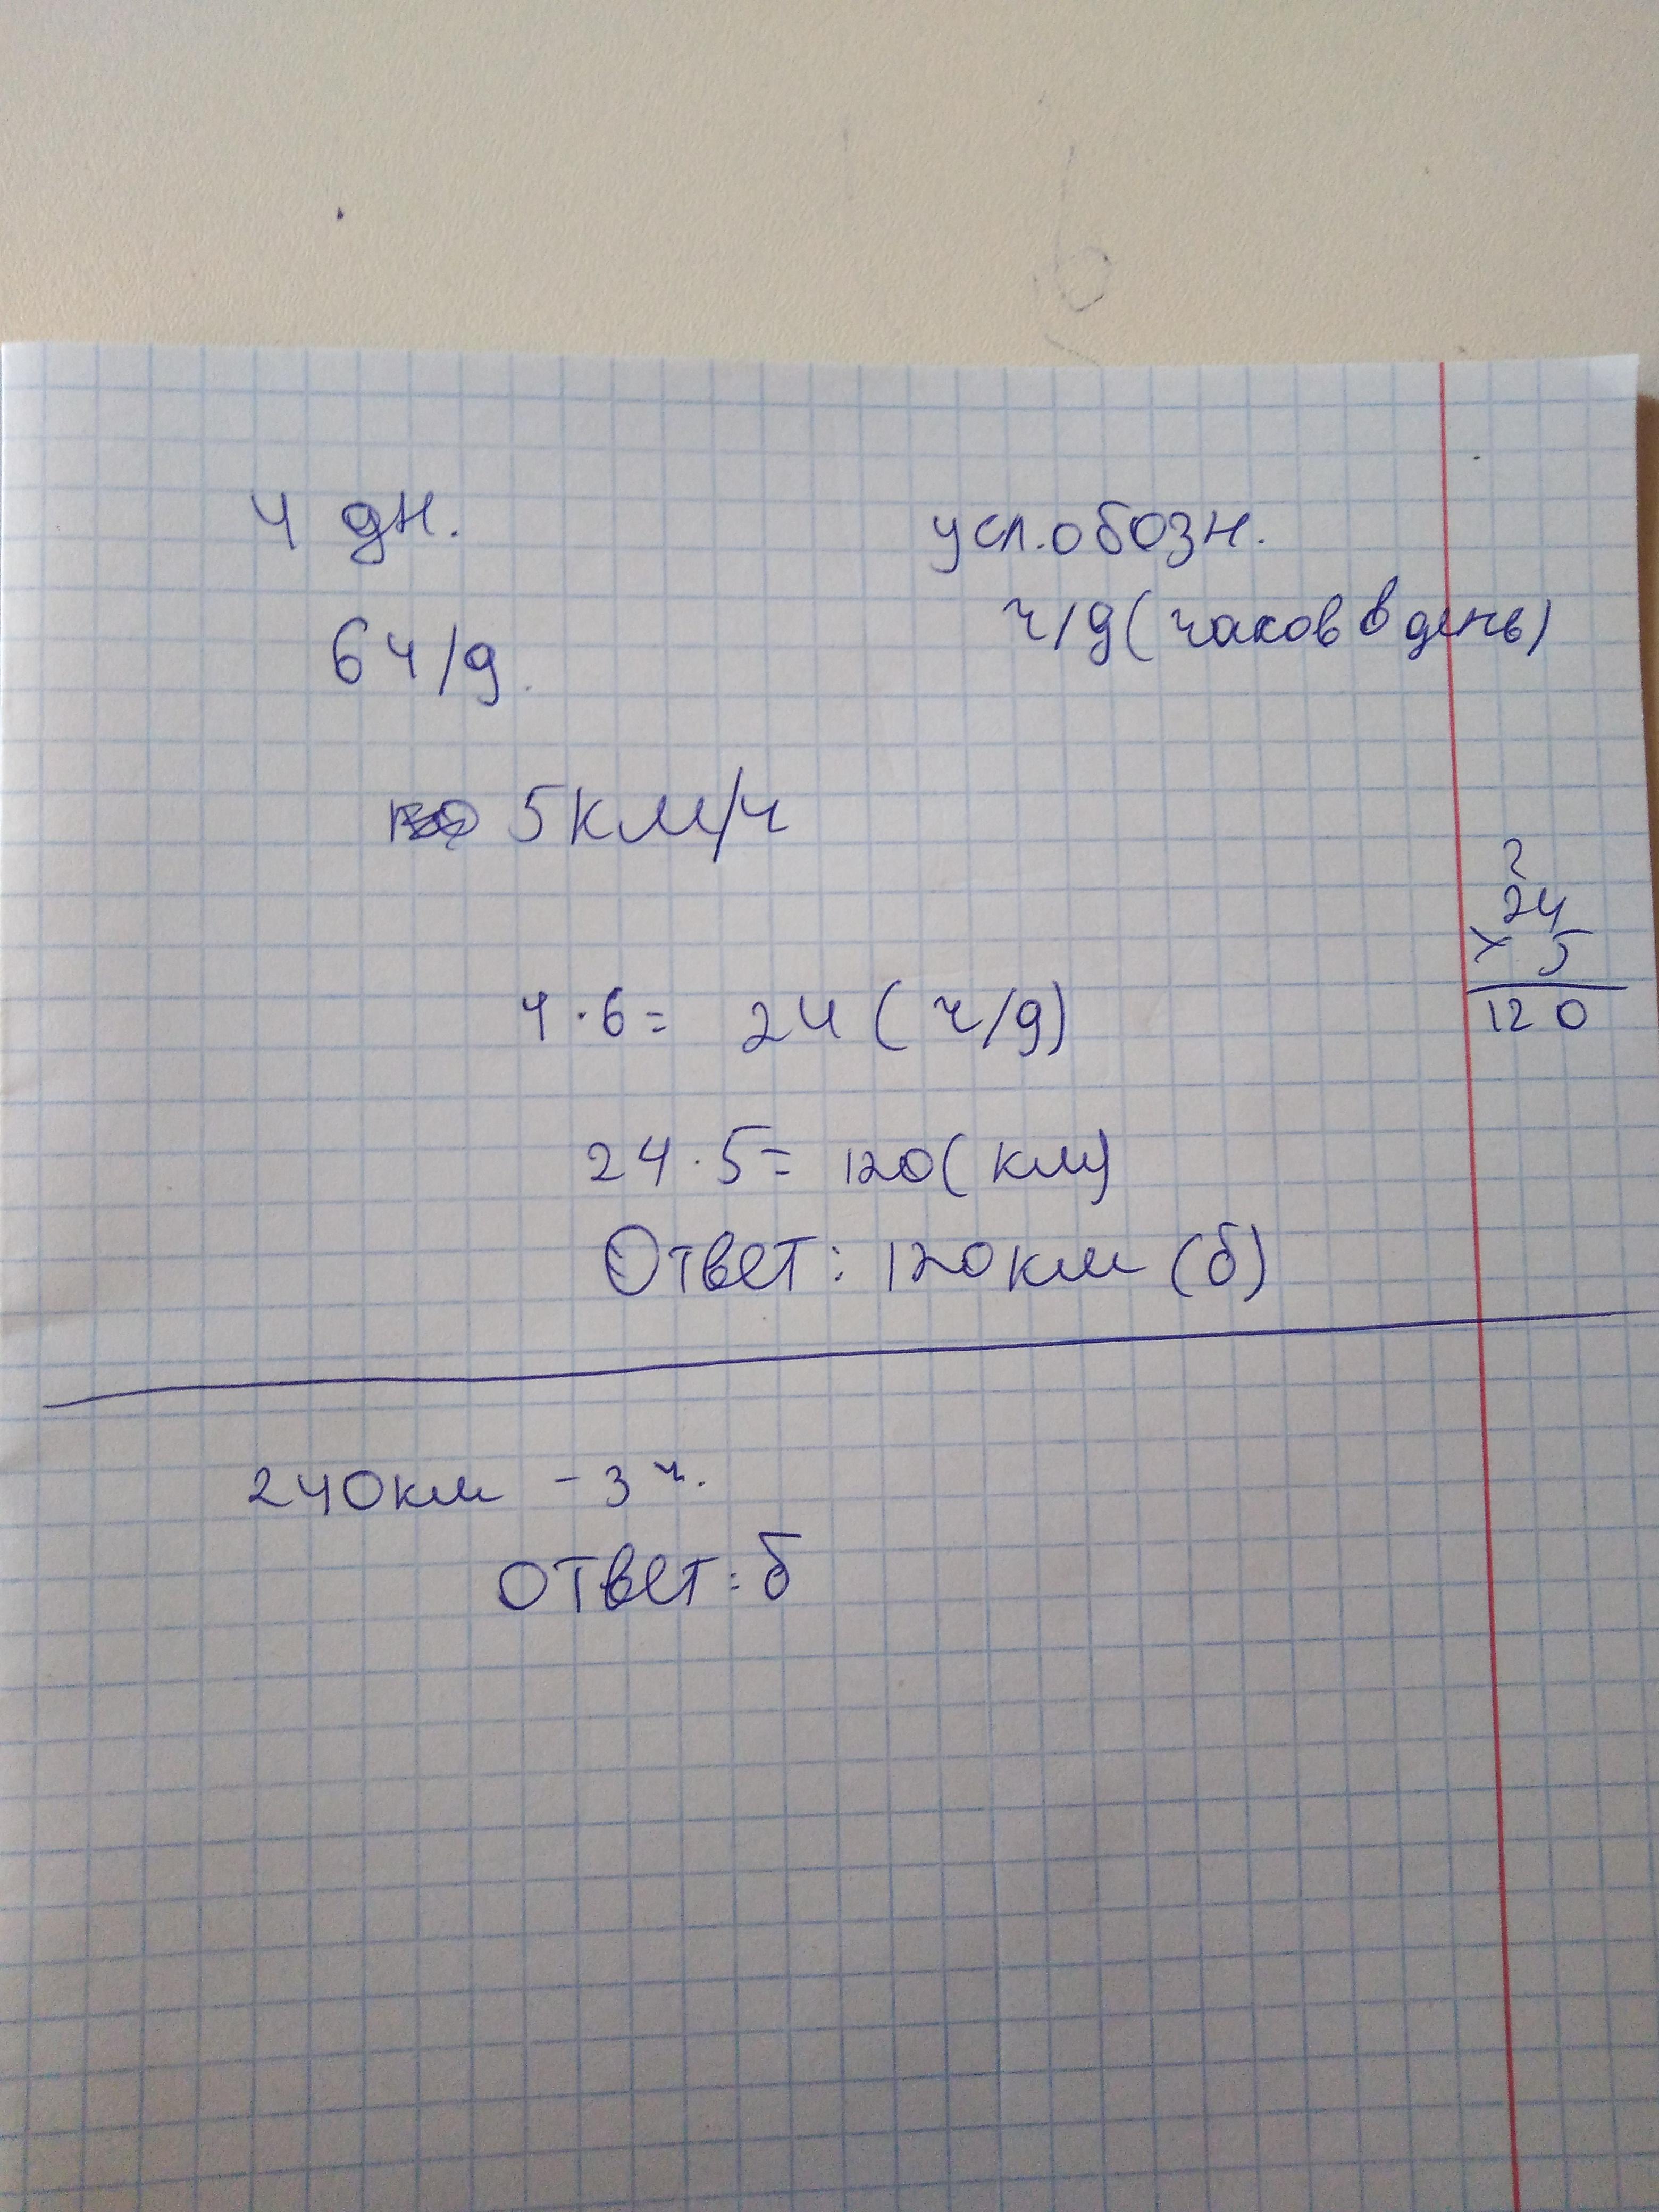 4 дн.
усл. обозн.
6 ч/д
ч/д (часов в день)
5 км/ч
2
24
× 5
120
4 · 6 = 24 (ч/д)
24 · 5 = 120 (км)
Ответ: 120 км (б)
240 км – 3 ч.
Ответ: б